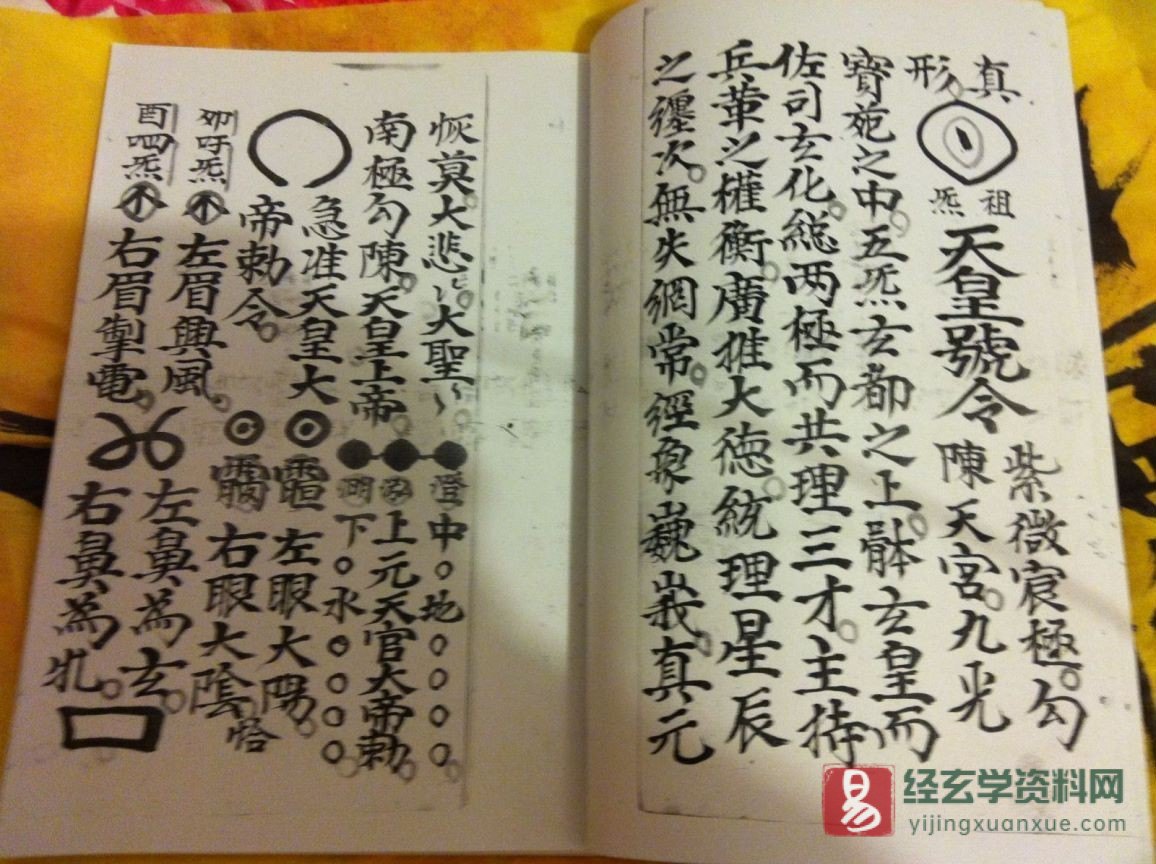 真形
祖炁
天皇號令
紫微宸極。勾
陳天宮。九光
寶苑之中。五炁玄都之上。骵玄皇而
佐司玄化。總兩極而共理三才。主持
兵革之權衡。廣推大德。統理星辰
之纏次。無失綱常。經象巍峩。真元
恢莫大悲〻。大聖〻
南極勾陳。天皇上帝
急准天皇大
帝勅令。
澄中。地。。。。
上元天官大帝勅
下。水。。。。
左眼大陽。
右眼大陰
恰
卯呼炁
左眉興風。
酉呬炁
右眉掣電。
左鼻為玄。
右鼻為牝。
经玄学资料网
yijingxuanxue.com